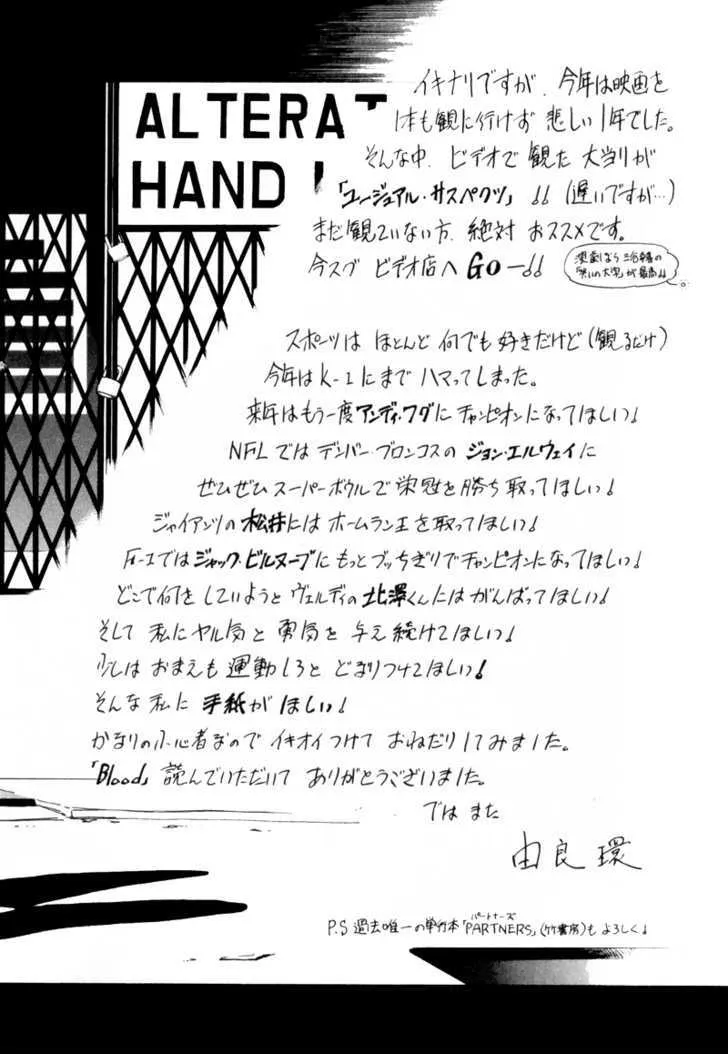 ALTERAT
HAND
イキナリですが、今年は映画を
1本も観に行けず 悲しい1年でした。
そんな中、ビデオで観た大当りが
「ユージュアル・サスペクツ」!! (遅いですが…)
まだ観ていない方、絶対おススメです。
今スグ ビデオ店へGOー!!
スポーツは ほとんど何でも好きだけど(観るだけ)
今年はK-1にまで ハマってしまった。
来年はもう一度アンディ・フグに チャンピオンになってほしい!
NFLでは デンバー・ブロンコスの ジョン・エルウェイに
ぜひぜひスーパーボウルで栄冠を勝ち取ってほしい!
ジャイアンツの松井にはホームラン王を取ってほしい!
F-1ではジャック・ビルヌーブにもっとブッちぎりでチャンピオンになってほしい!
どこで何をしていようと ヴェルディの北澤くんにはがんばってほしい!
そして 私にヤル気と勇気を与え続けてほしい!
少しは おまえも運動しろと どまりつけてほしい!
そんな私に 手紙がほしい!
かなりの小心者なので イキオイつけて おねだりしてみました。
「Blood」読んでいただいて ありがとうございました。
では また
由良 環
P.S 過去唯一の単行本「PARTNERS」(竹書房)も よろしく!
パートナーズ